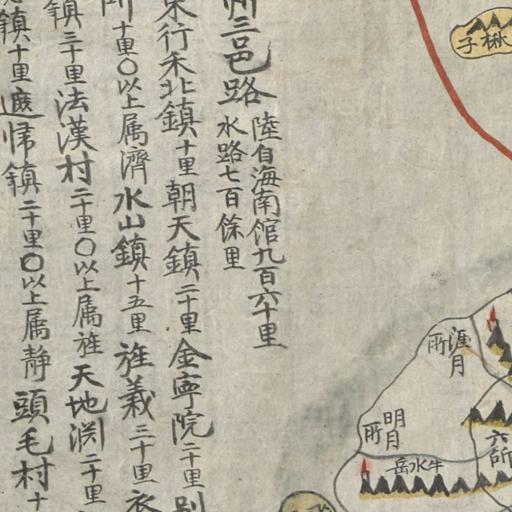 州三邑路
陸自海南館九百六十里
水路七百餘里
東行禾北鎮十里朝天鎮二十里金寧院二十里別
所十里〇以上属濟水山鎮十五里旌義三十里衣
鎮三十里法漢村二十里〇以上属旌天地渊二十里
鎮十里遮帰鎮二十里〇以上属静頭毛村十
子楸
涯月所
明月所
六所
岳水牛